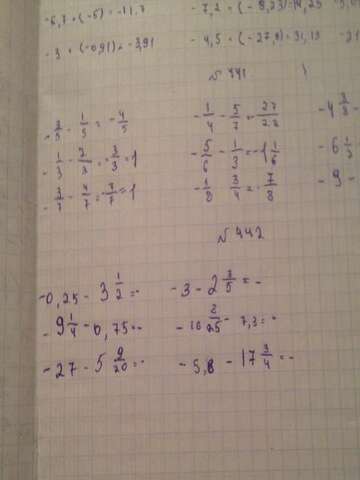 -6,7 + (-5) = -11,7 -7,2 + (-8,23) -14,25
-3 + (-0,91) = -3,91 -4,5 + (-27,9) = 31,13 -21
№ 441
-3/5 - 1/5 = -4/5 -1/4 - 5/7 = -27/28 -4 3/8 -
-1/3 - 2/3 = -3/3 = 1 -5/6 - 1/3 = -1 1/6 -6 1/3
-3/7 - 4/7 = -7/7 = 1 -1/8 3/4 = -7/8 -9 -
№ 442
-0,25 - 3 1/2 = - -3 - 2 3/5 = -
-9 1/4 - 0,75 = - -10 2/25 - 7,3 = -
-27 - 5 9/20 = - -5,8 - 17 3/4 = -